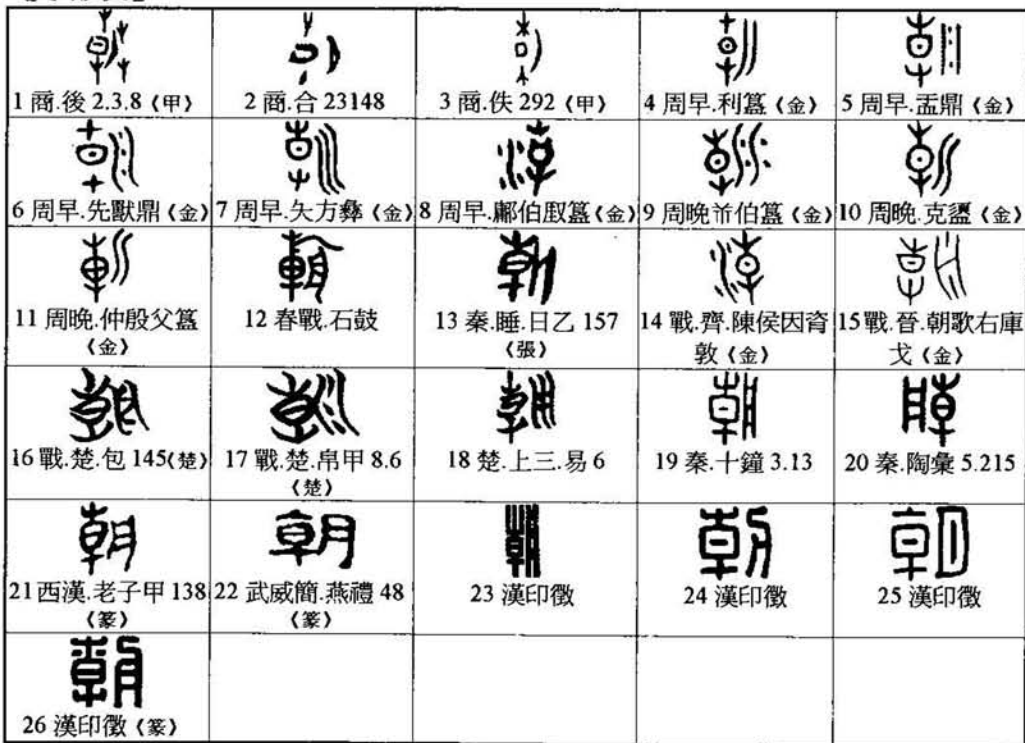 1 商.後 2.3.8《甲》
2 商.合 23148
3 商.佚 292《甲》
4 周早.利簋《金》
5 周早.盂鼎《金》
6 周早.先獸鼎《金》
7 周早.夨方彝《金》
8 周早.𨛭伯𠭯簋《金》
9 周晚.𦍒伯簋《金》
10 周晚.克盨《金》
11 周晚.仲殷父簋
《金》
12 春戰.石鼓
13 秦.睡.日乙 157
《張》
14 戰.齊.陳侯因𬱖
敦《金》
15 戰.晉.朝歌右庫
戈《金》
16 戰.楚.包 145《楚》
17 戰.楚.帛甲 8.6
《楚》
18 楚.上三.易 6
19 秦.十鐘 3.13
20 秦.陶彙 5.215
21 西漢.老子甲 138
《篆》
22 武威簡.燕禮 48
《篆》
23 漢印徵
24 漢印徵
25 漢印徵
26 漢印徵《篆》